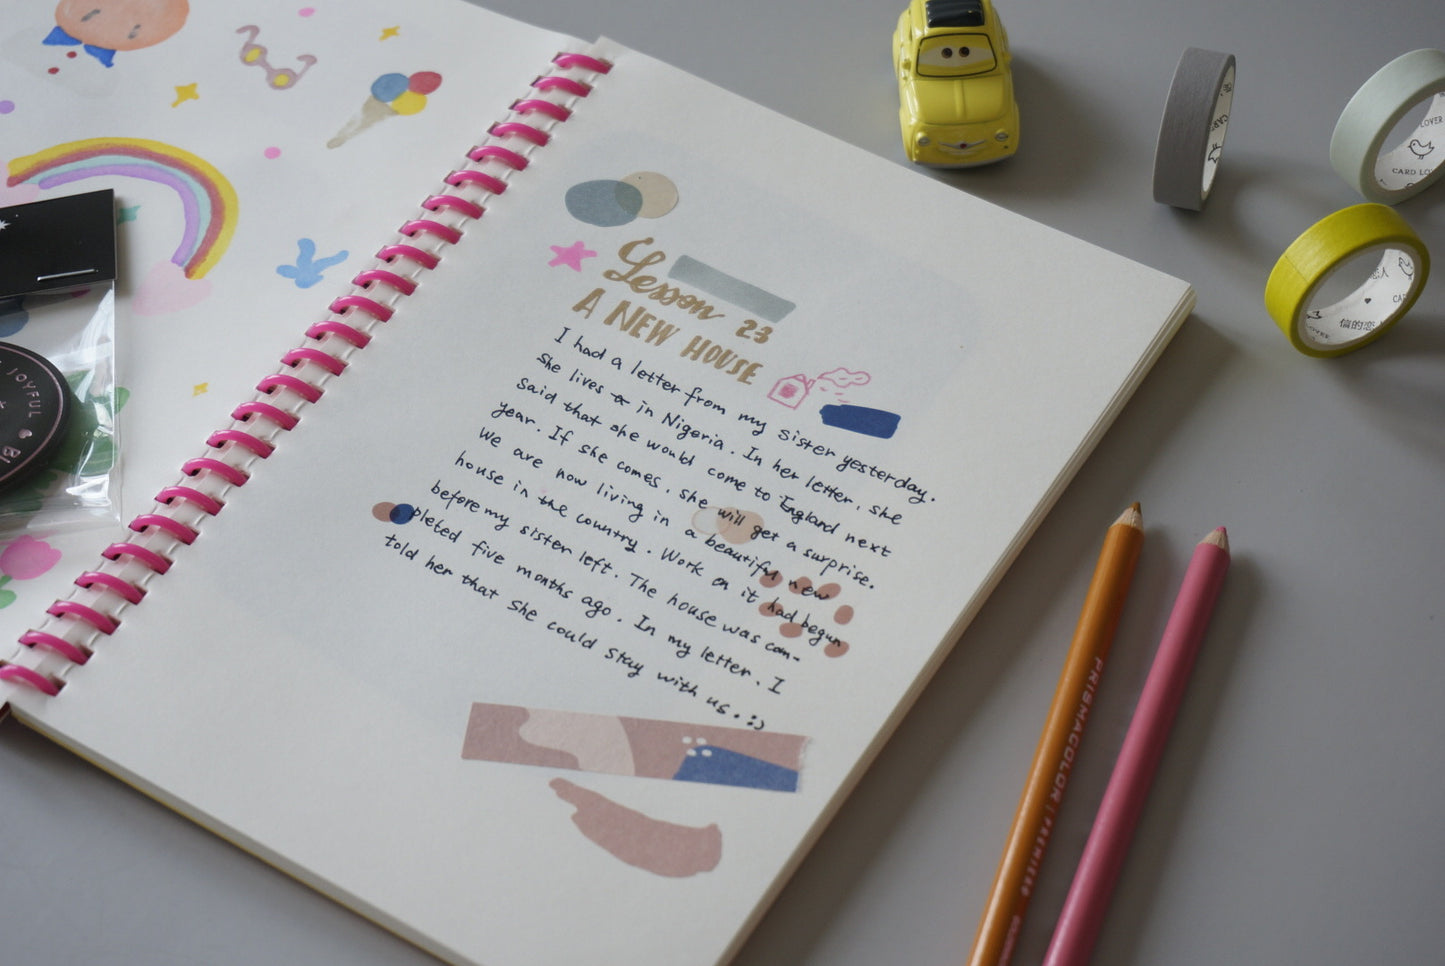 Lesson 23
A NEW HOUSE
I had a letter from my sister yesterday.
She lives in Nigeria. In her letter, she
said that she would come to England next
year. If she comes, she will get a surprise.
We are now living in a beautiful new
house in the country. Work on it had begun
before my sister left. The house was com-
pleted five months ago. In my letter, I
told her that she could stay with us. :)
JOYFUL
CARD LO
信的恋人
PRISMACOLOR | PREMIER